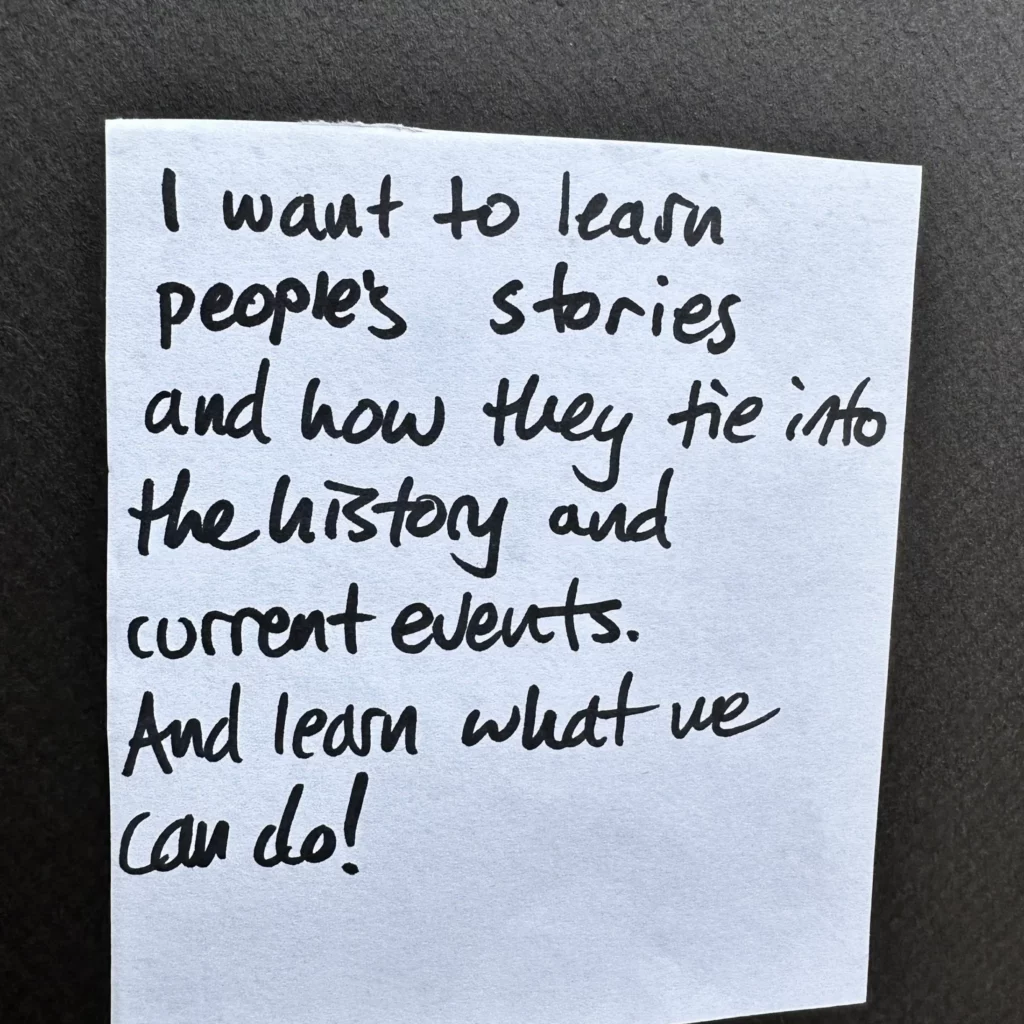 I want to learn
people's stories
and how they tie into
the history and
current events.
And learn what we
can do!